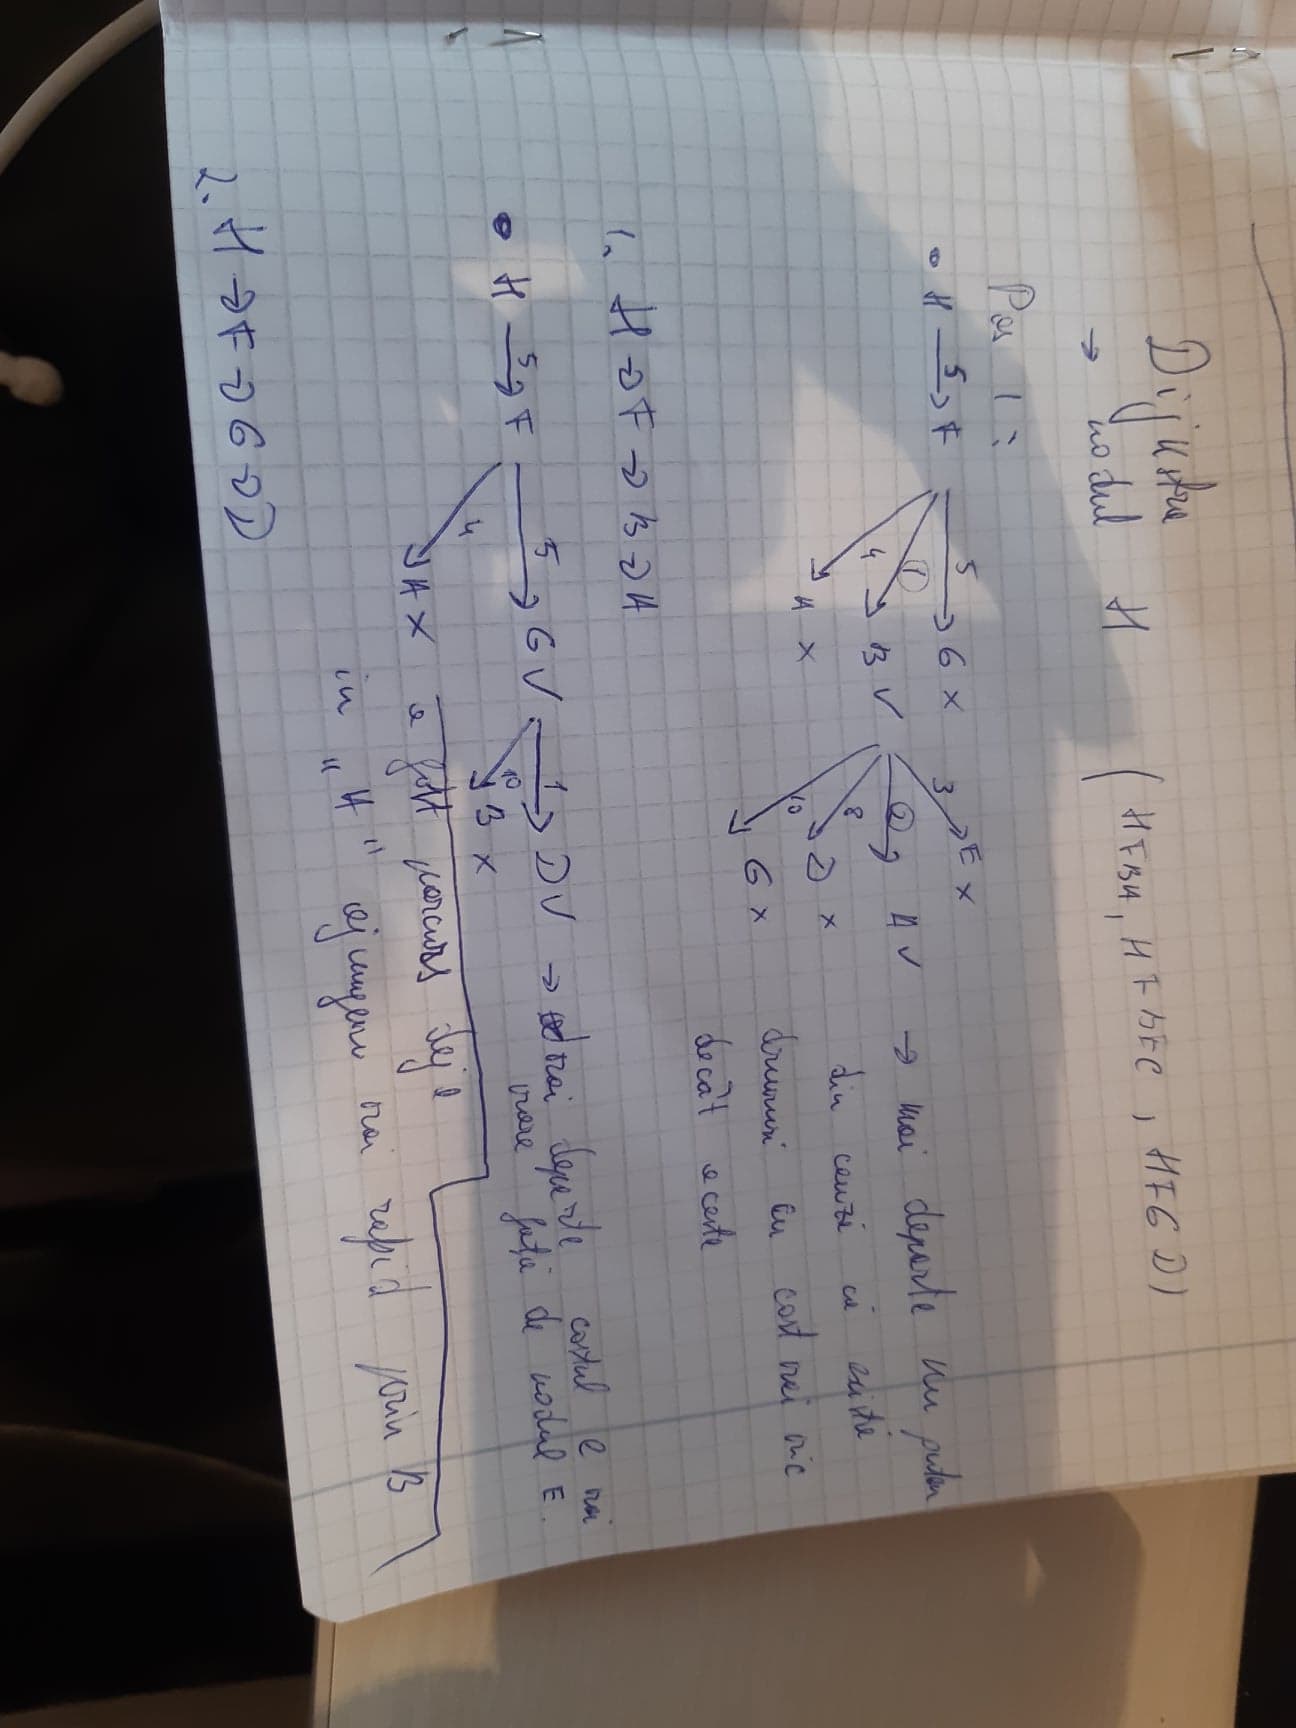 Dijkstra
→ nodul H (HFBA, HFBEC, HFGD)
Pas 1:
• H →5 F
5 → G X
1 → B V
4 → A X
3 → E X
2 → A V → mai departe nu putem
8 → D X din cauză că există
10 → G X drumuri cu cost mai mic
decât aceste
1. H → F → B → A
• H →5 F
5 → G V
1 → D V → mai departe costul e mai
10 → B X mare față de nodul E.
4 → A X a fost parcurs deja
în "A" ajungem mai rapid prin B
2. H → F → G → D